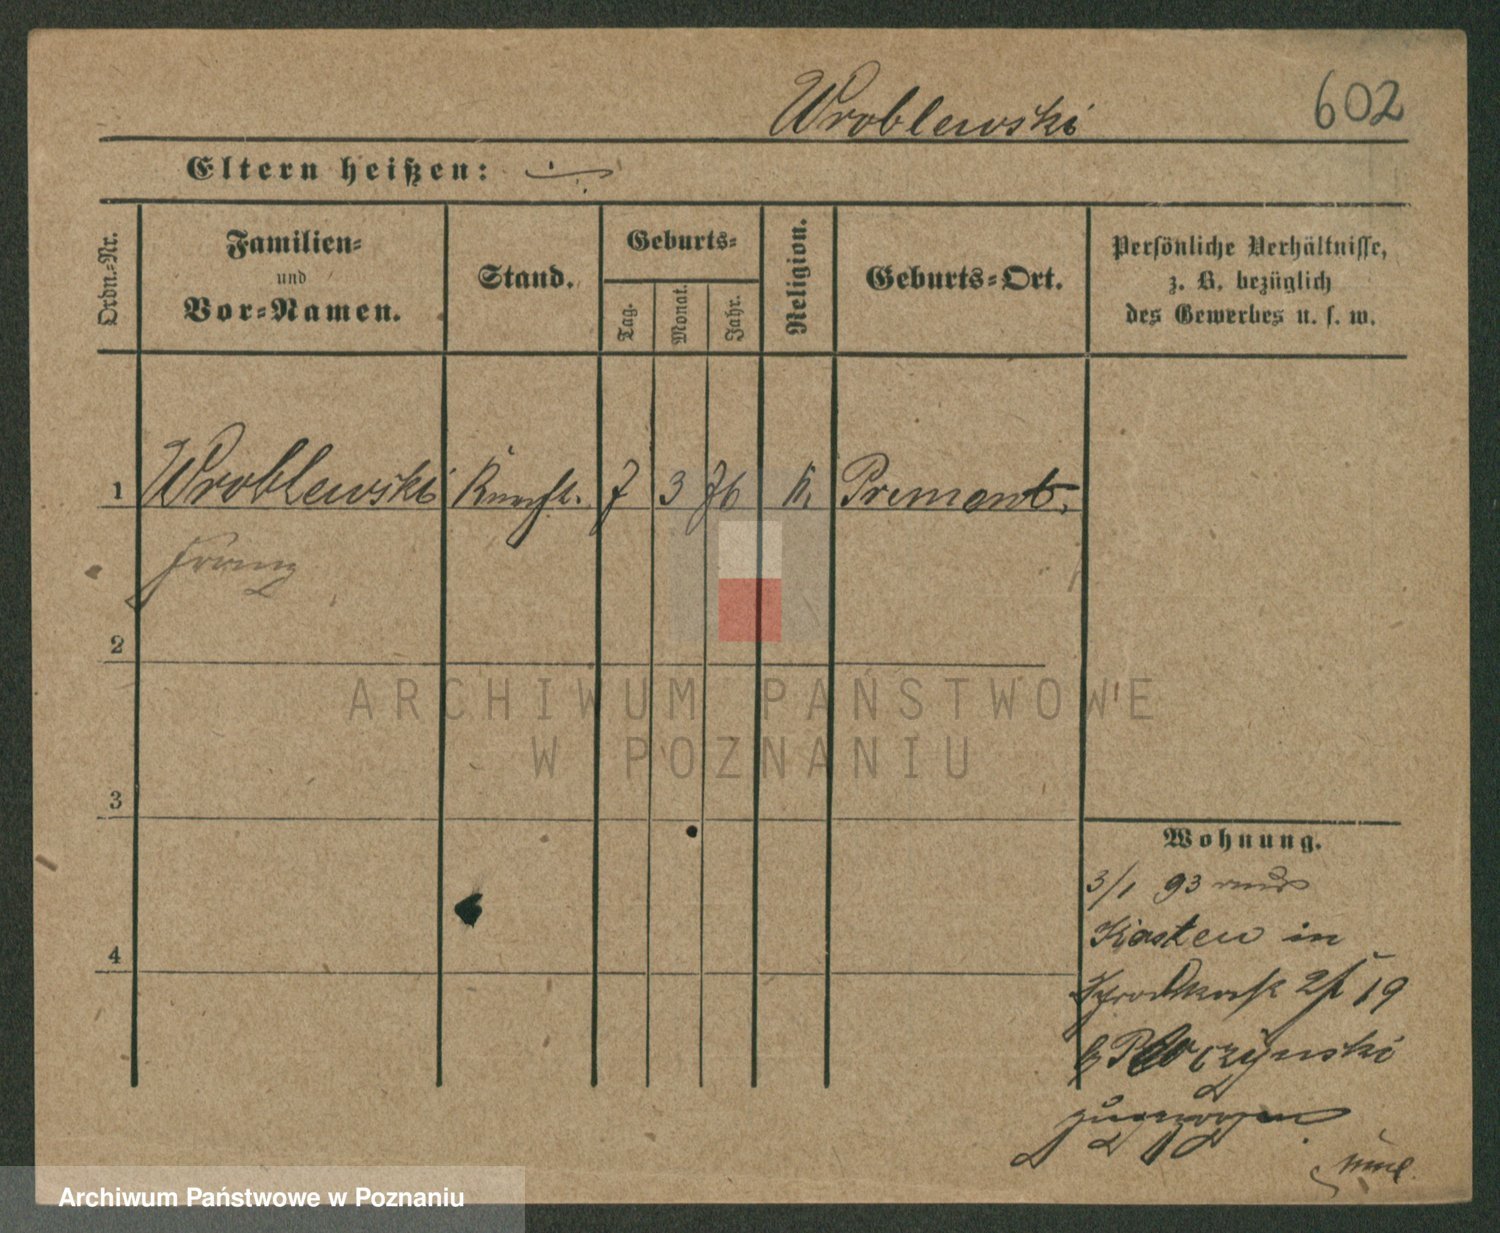 Wroblewski 602
Eltern heißen:
Ordn.-Nr.
Familien-
und
Vor-Namen.
Stand.
Geburts-
Tag.
Monat.
Jahr.
Religion.
Geburts-Ort.
Persönliche Verhältnisse,
z. B. bezüglich
des Gewerbes u. s. w.
1 Wroblewski 7 3 76 K. Premont.
Franz
2
3
4
Wohnung.
3/1 93 aus
Kosten in
19
zugezogen
ARCHIWUM PAŃSTWOWE
W POZNANIU
Archiwum Państwowe w Poznaniu